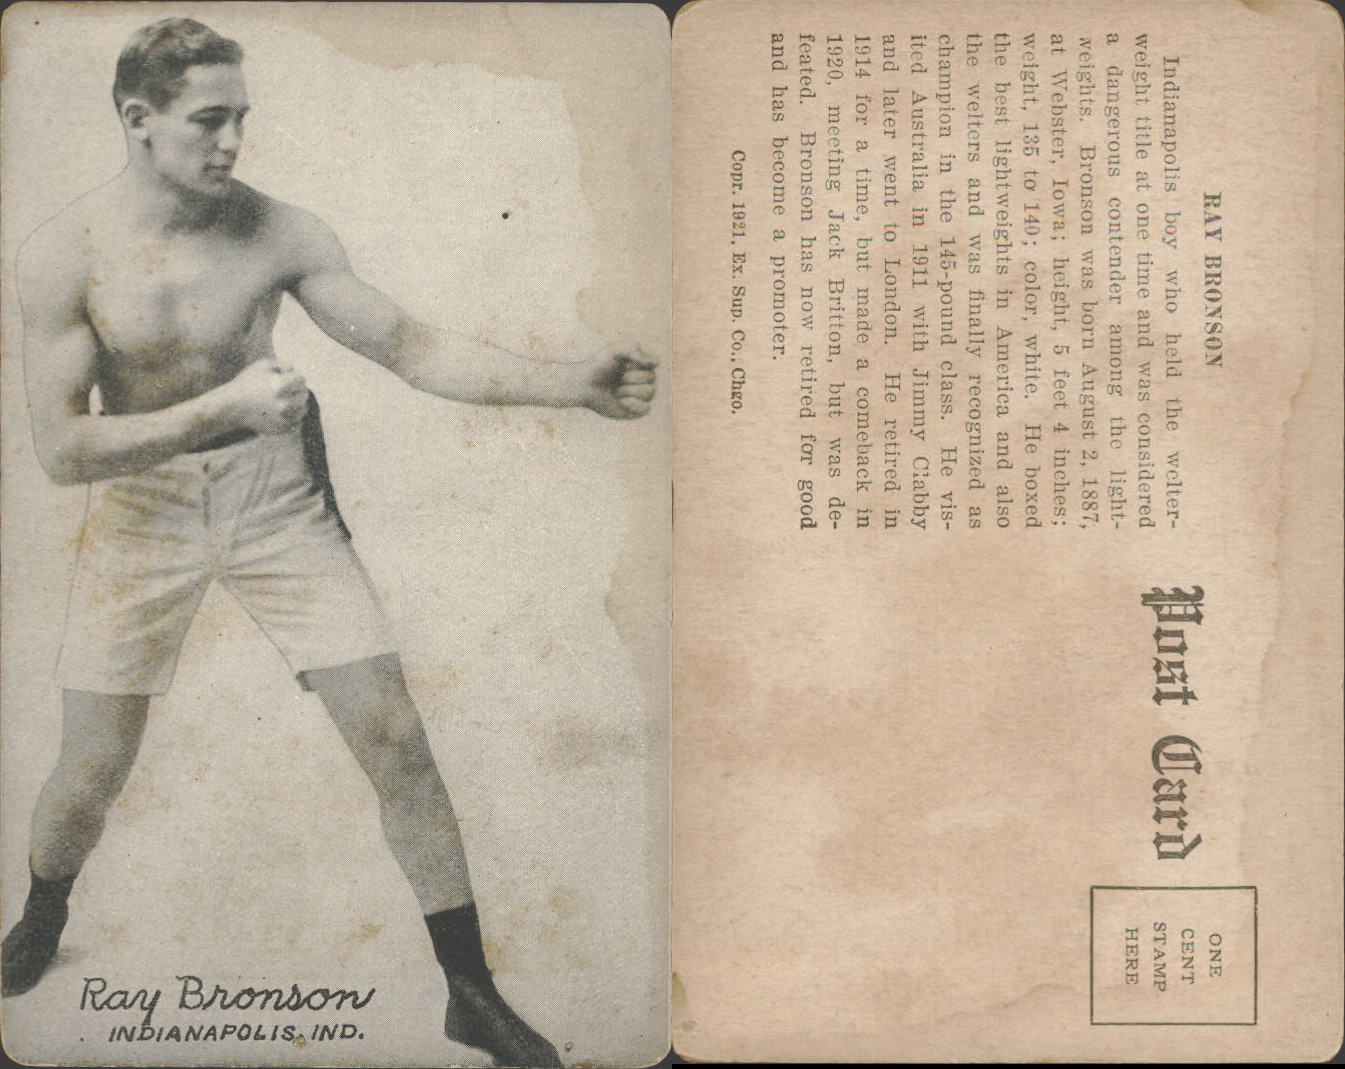 Ray Bronson
INDIANAPOLIS, IND.
RAY BRONSON
Indianapolis boy who held the welter-
weight title at one time and was considered
a dangerous contender among the light-
weights. Bronson was born August 2, 1887,
at Webster, Iowa; height, 5 feet 4 inches;
weight, 135 to 140; color, white. He boxed
the best lightweights in America and also
the welters and was finally recognized as
champion in the 145-pound class. He vis-
ited Australia in 1911 with Jimmy Clabby
and later went to London. He retired in
1914 for a time, but made a comeback in
1920, meeting Jack Britton, but was de-
feated. Bronson has now retired for good
and has become a promoter.
Copr. 1921, Ex. Sup. Co., Chgo.
Post Card
ONE
CENT
STAMP
HERE